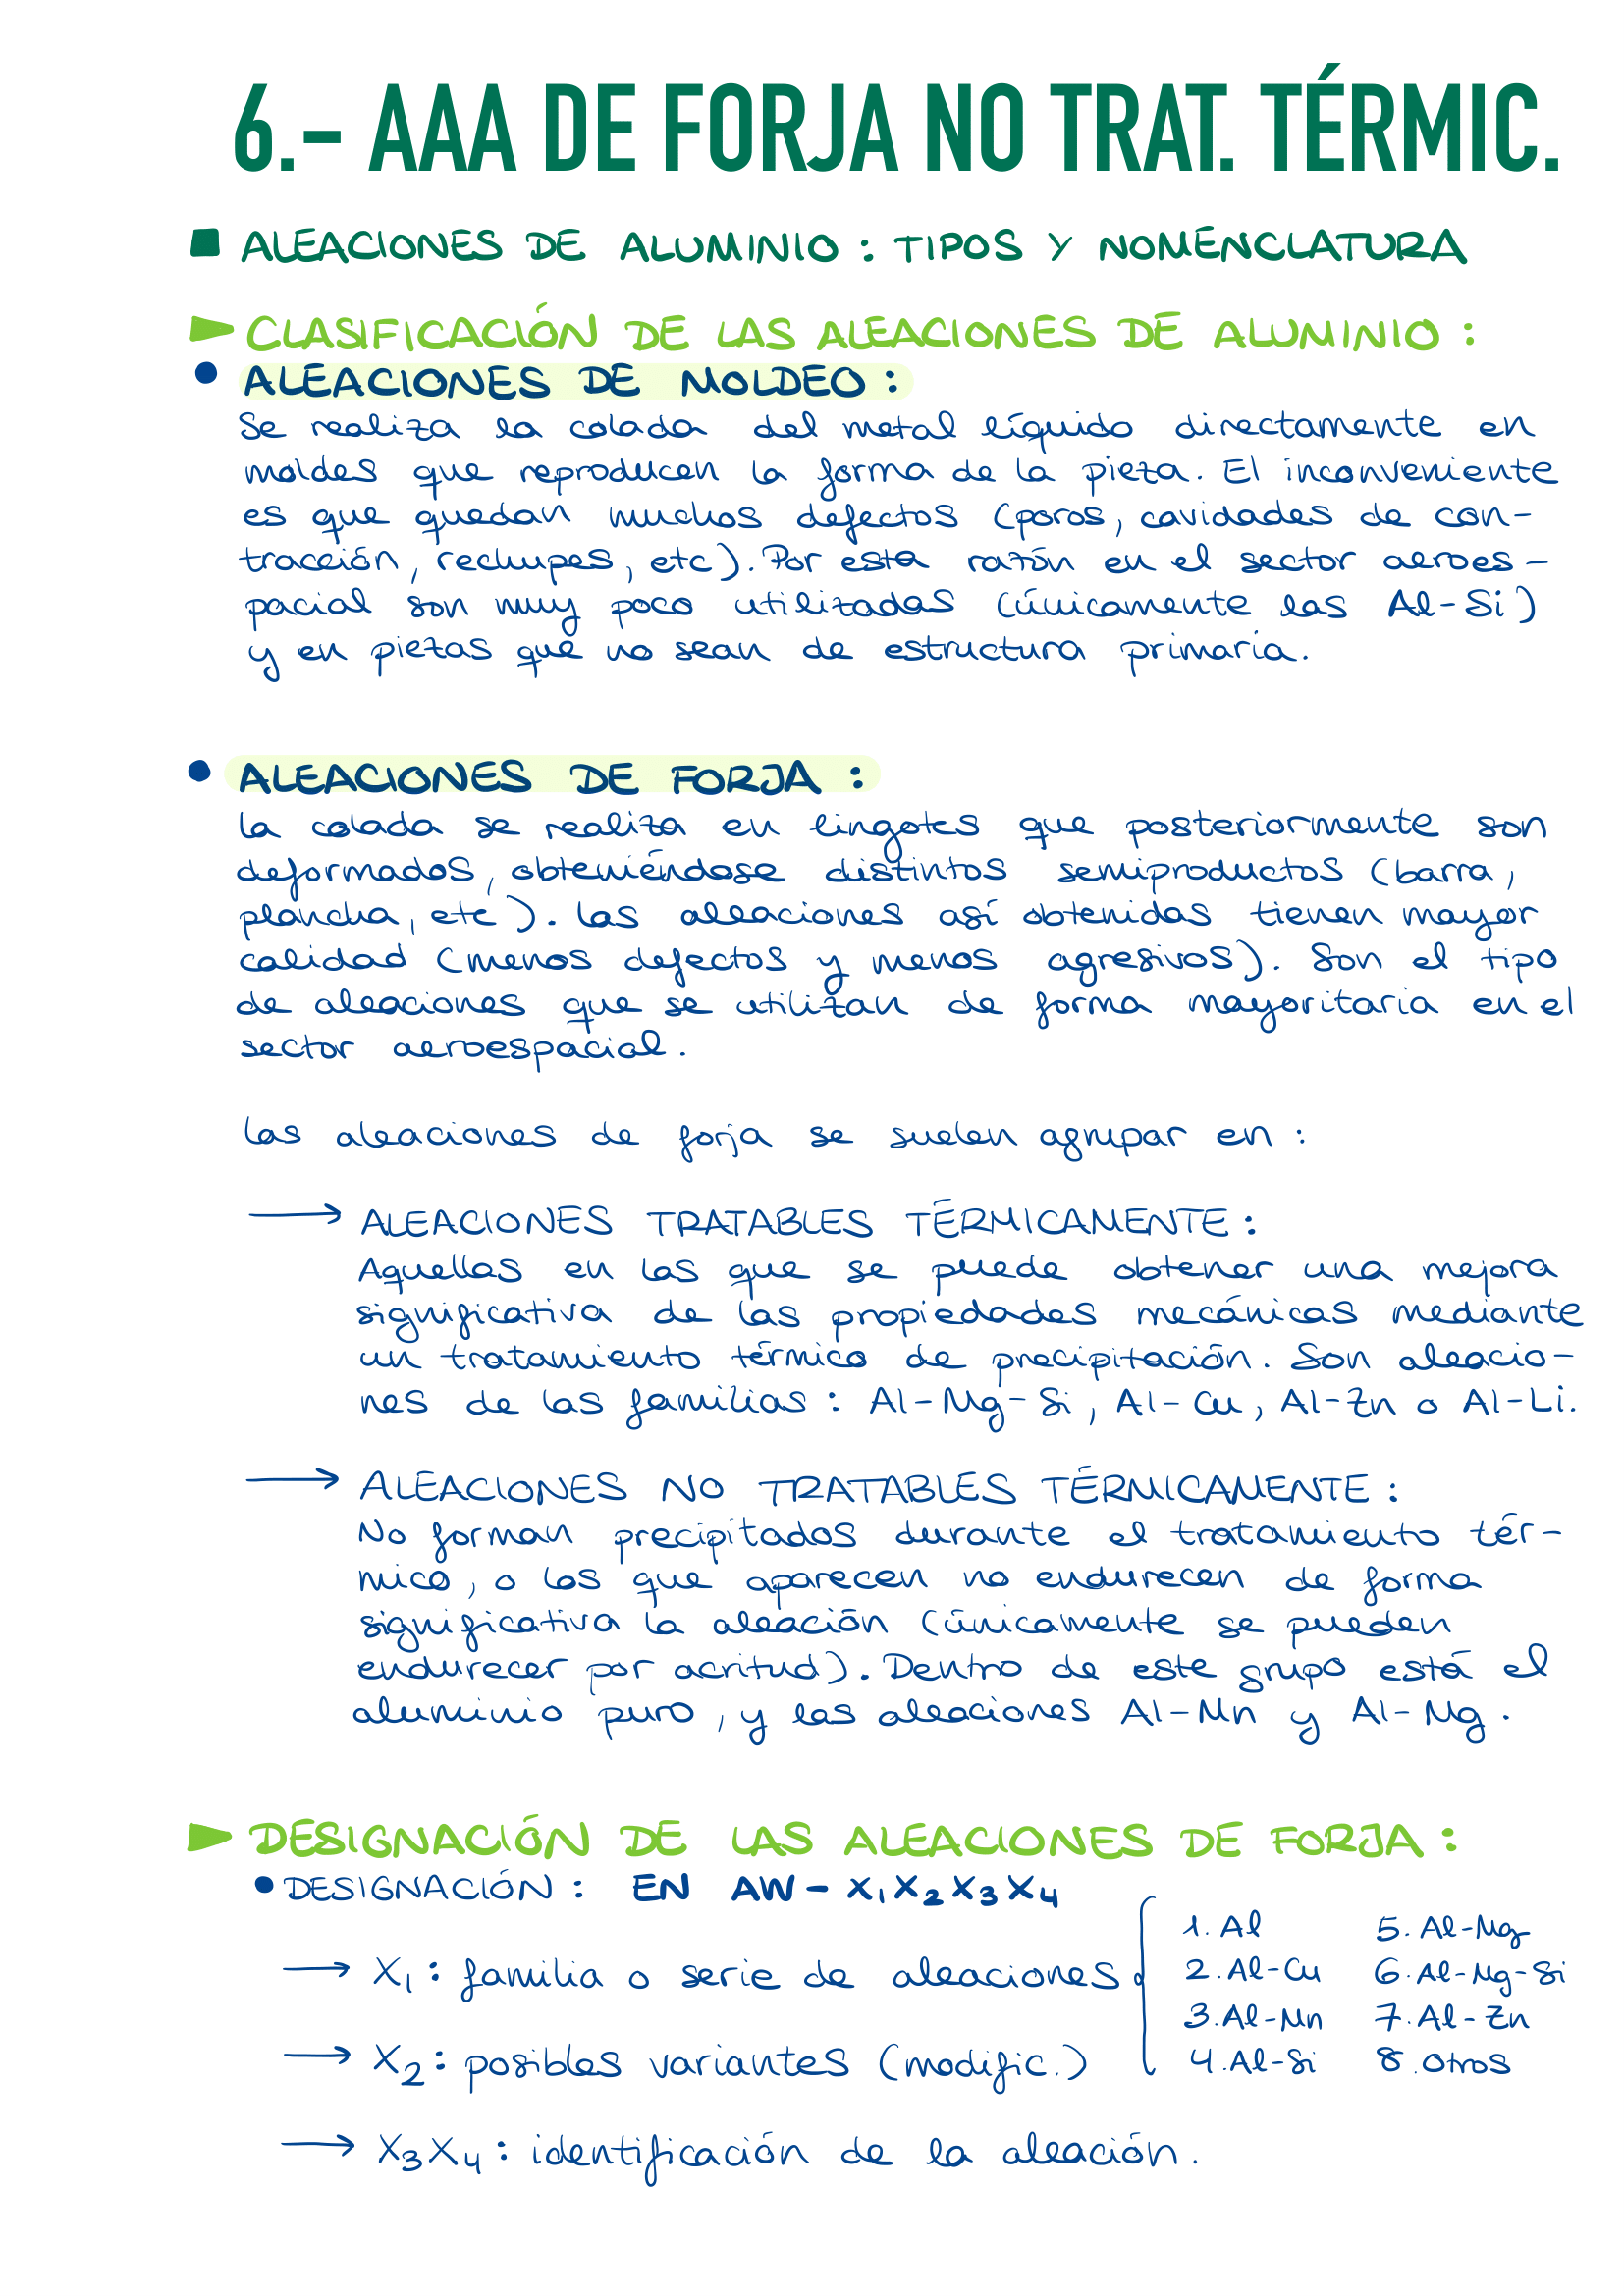 6.- AAA DE FORJA NO TRAT. TÉRMIC.
ALEACIONES DE ALUMINIO : TIPOS Y NOMENCLATURA
CLASIFICACIÓN DE LAS ALEACIONES DE ALUMINIO :
ALEACIONES DE MOLDEO :
Se realiza la colada del metal líquido directamente en
moldes que reproducen la forma de la pieza. El inconveniente
es que quedan muchos defectos (poros, cavidades de con-
tracción, rechupes, etc). Por esta razón en el sector aeroes-
pacial son muy poco utilizadas (únicamente las Al-Si)
y en piezas que no sean de estructura primaria.
ALEACIONES DE FORJA :
La colada se realiza en lingotes que posteriormente son
deformados, obteniéndose distintos semiproductos (barra,
plancha, etc). Las aleaciones así obtenidas tienen mayor
calidad (menos defectos y menos agresivos). Son el tipo
de aleaciones que se utilizan de forma mayoritaria en el
sector aeroespacial.
Las aleaciones de forja se suelen agrupar en :
→ ALEACIONES TRATABLES TÉRMICAMENTE :
Aquellas en las que se puede obtener una mejora
significativa de las propiedades mecánicas mediante
un tratamiento térmico de precipitación. Son aleacio-
nes de las familias : Al-Mg-Si, Al-Cu, Al-Zn o Al-Li.
→ ALEACIONES NO TRATABLES TÉRMICAMENTE :
No forman precipitados durante el tratamiento tér-
mico, o los que aparecen no endurecen de forma
significativa la aleación (únicamente se pueden
endurecer por acritud). Dentro de este grupo está el
aluminio puro, y las aleaciones Al-Mn y Al-Mg.
DESIGNACIÓN DE LAS ALEACIONES DE FORJA :
DESIGNACIÓN : EN AW - X₁X₂X₃X₄
→ X₁ : familia o serie de aleaciones
1. Al 5. Al-Mg
2. Al-Cu 6. Al-Mg-Si
3. Al-Mn 7. Al-Zn
4. Al-Si 8. Otros
→ X₂ : posibles variantes (modific.)
→ X₃X₄ : identificación de la aleación.